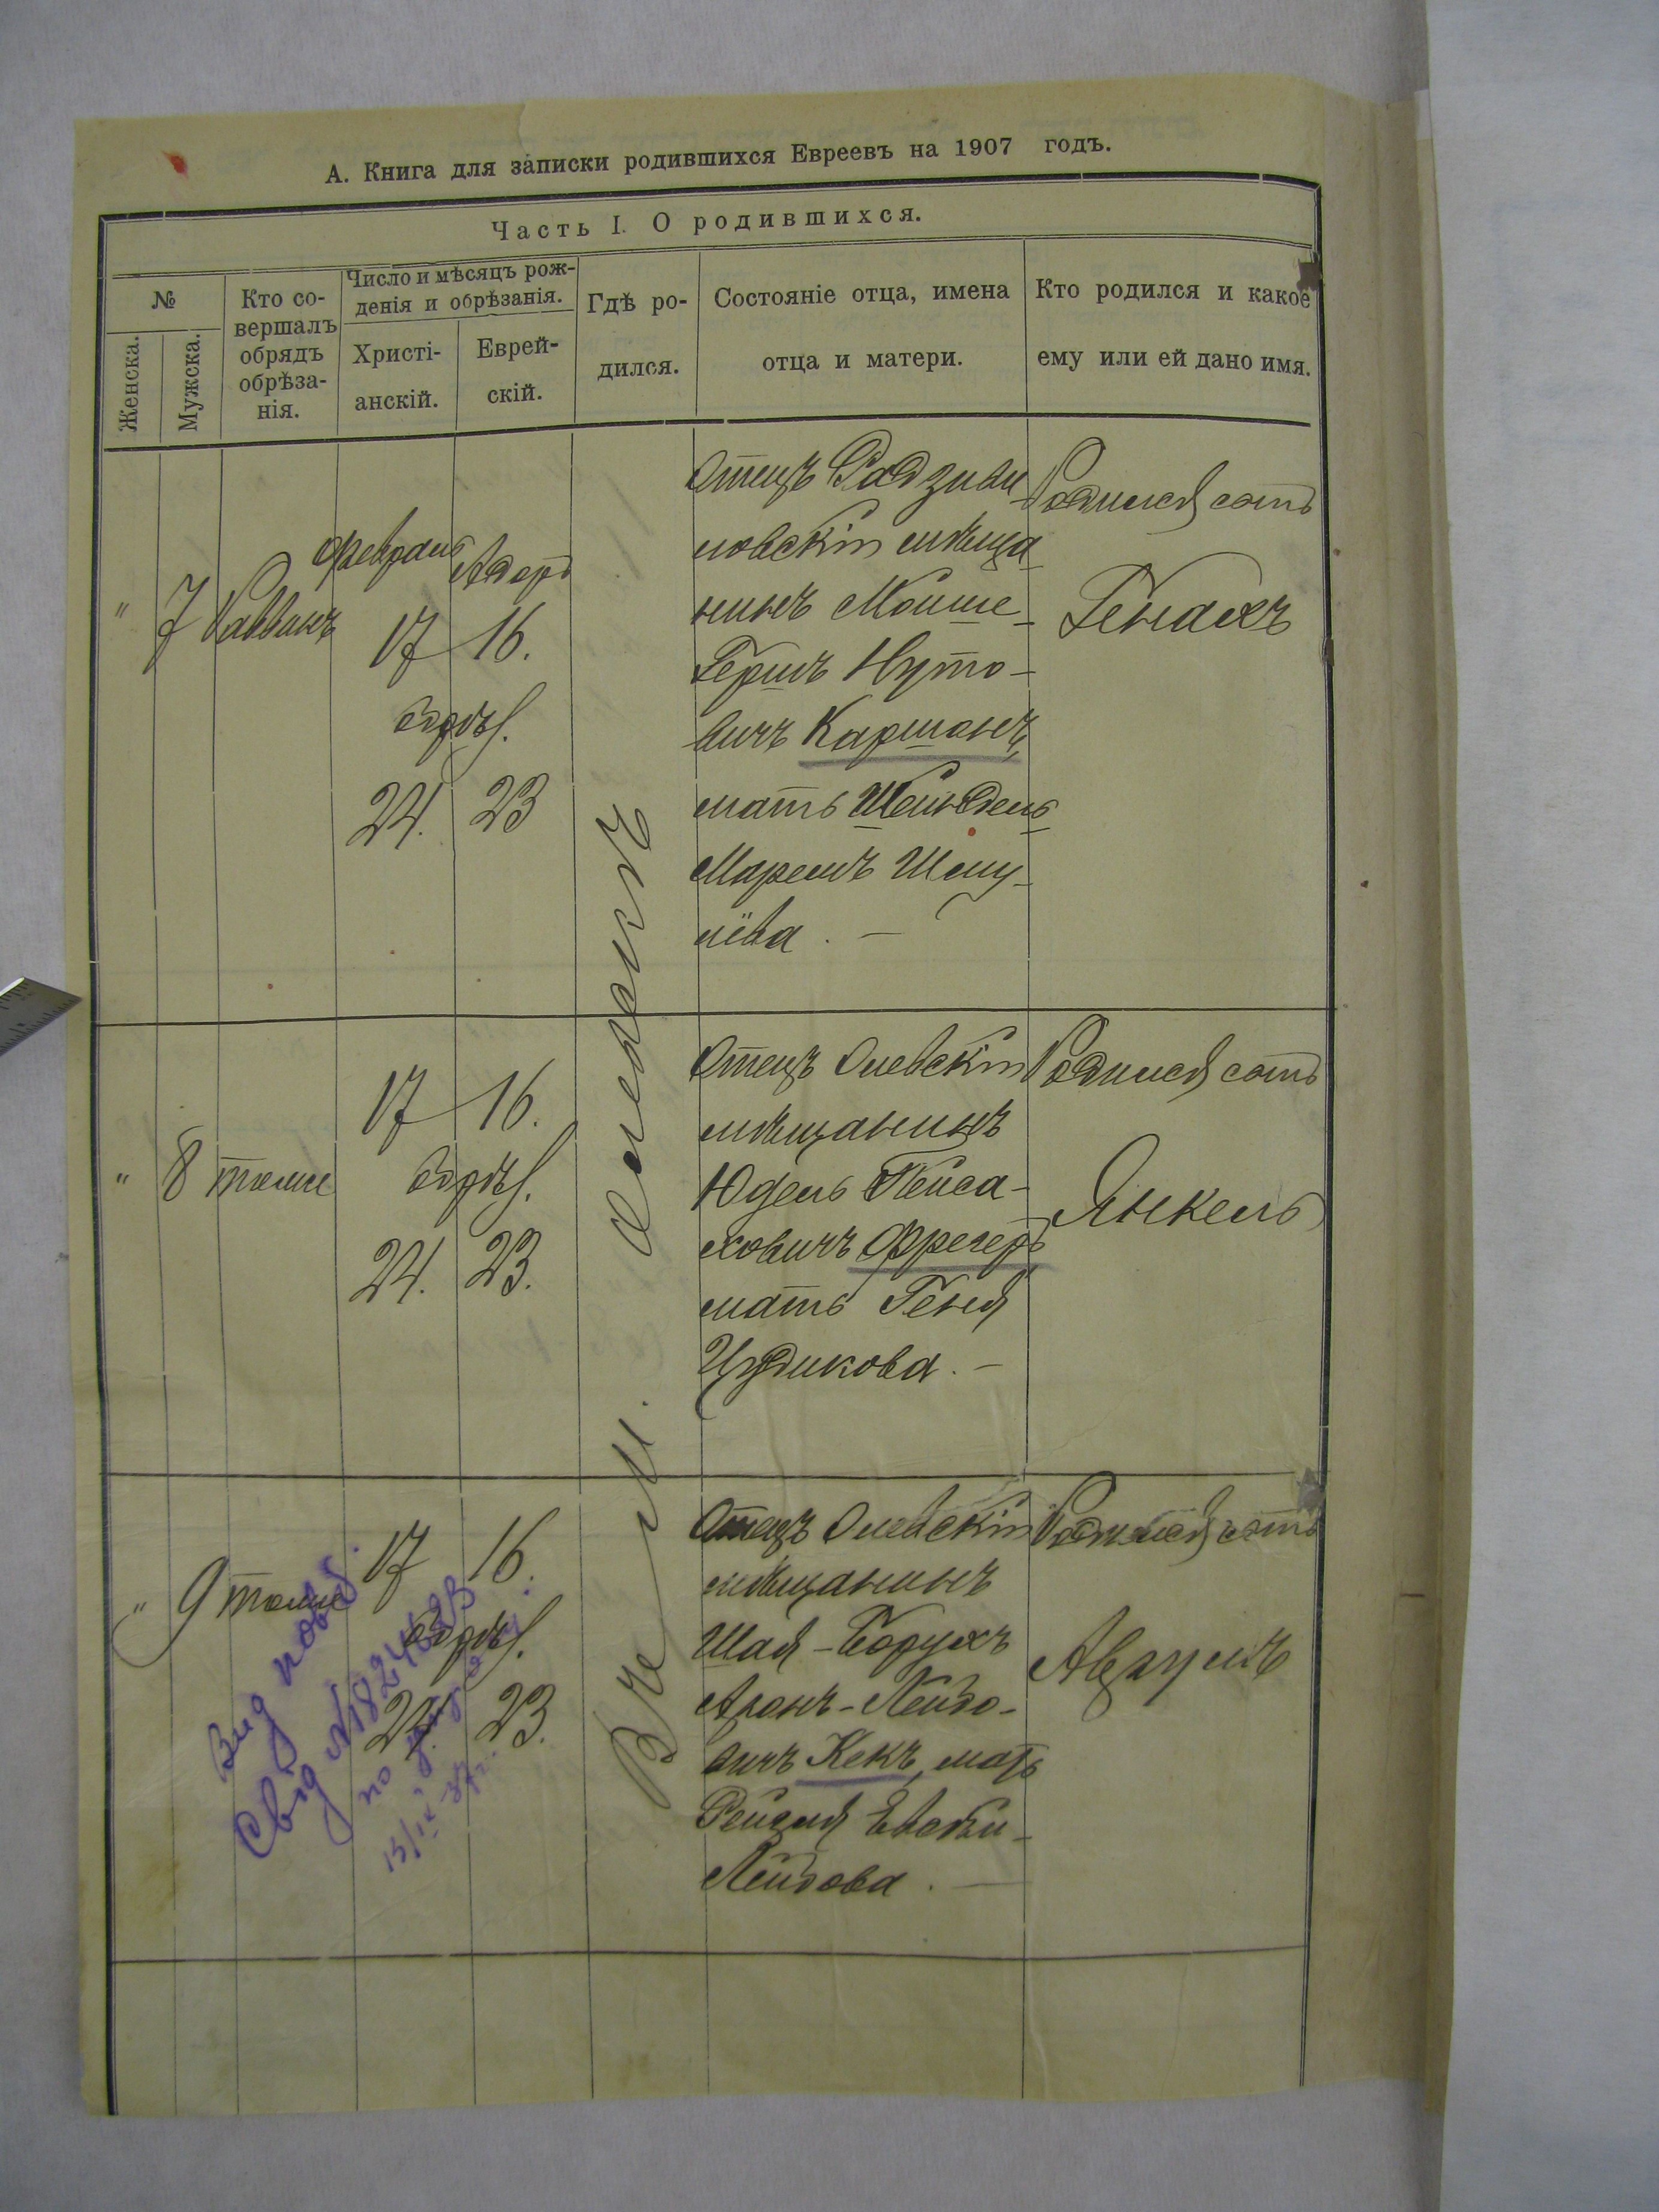 А. Книга для записки родившихся Евреевъ на 1907 годъ.
Часть I. О родившихся.
№
Женска.
Мужска.
Кто со-
вершалъ
обрядъ
обрѣза-
нія.
Число и мѣсяцъ рож-
денія и обрѣзанія.
Христі-
анскій.
Еврей-
скій.
Гдѣ ро-
дился.
Состояніе отца, имена
отца и матери.
Кто родился и какое
ему или ей дано имя.
" 7 Раввинъ
Февраль Адаръ
17 16.
обрѣз.
24. 23
Отецъ Радзиви
ловскій мѣща
нинъ Мойше-
Гершъ Нуто-
вичъ Каршонъ,
мать Шейндель
Маремъ Шму-
лёва. —
Родился сынъ
Генахъ
" 8 тотже
17 16.
обрѣз.
24. 23.
Отецъ Олевскій
мѣщанинъ
Юдель Пейса-
ховичъ Фрегеръ
мать Геня
Цудикова. —
Родился сынъ
Янкель
" 9 тотже
17 16.
обрѣз.
24. 23.
Отецъ Олевскій
мѣщанинъ
Шая-Борухъ
Аронъ-Лейзо-
вичъ Кекъ, мать
Рейзля
Лейзова. —
Родился сынъ
Аврумъ
Въ м. Олевскѣ
Вид нов
Свід №
по